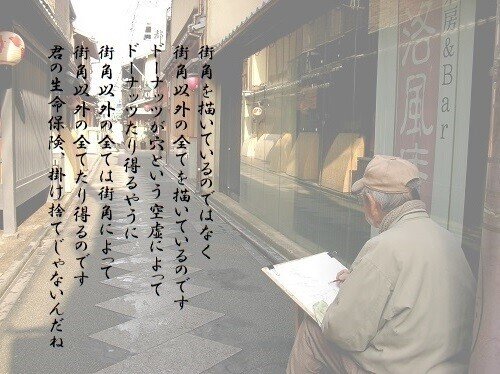 街角を描いているのではなく
街角以外の全てを描いているのです
ドーナッツが穴という空虚によって
ドーナッツたり得るやうに
街角以外の全ては街角によって
街角以外の全てたり得るのです
君の生命保険、掛け捨てじゃないんだね
房&Bar
洛風庵